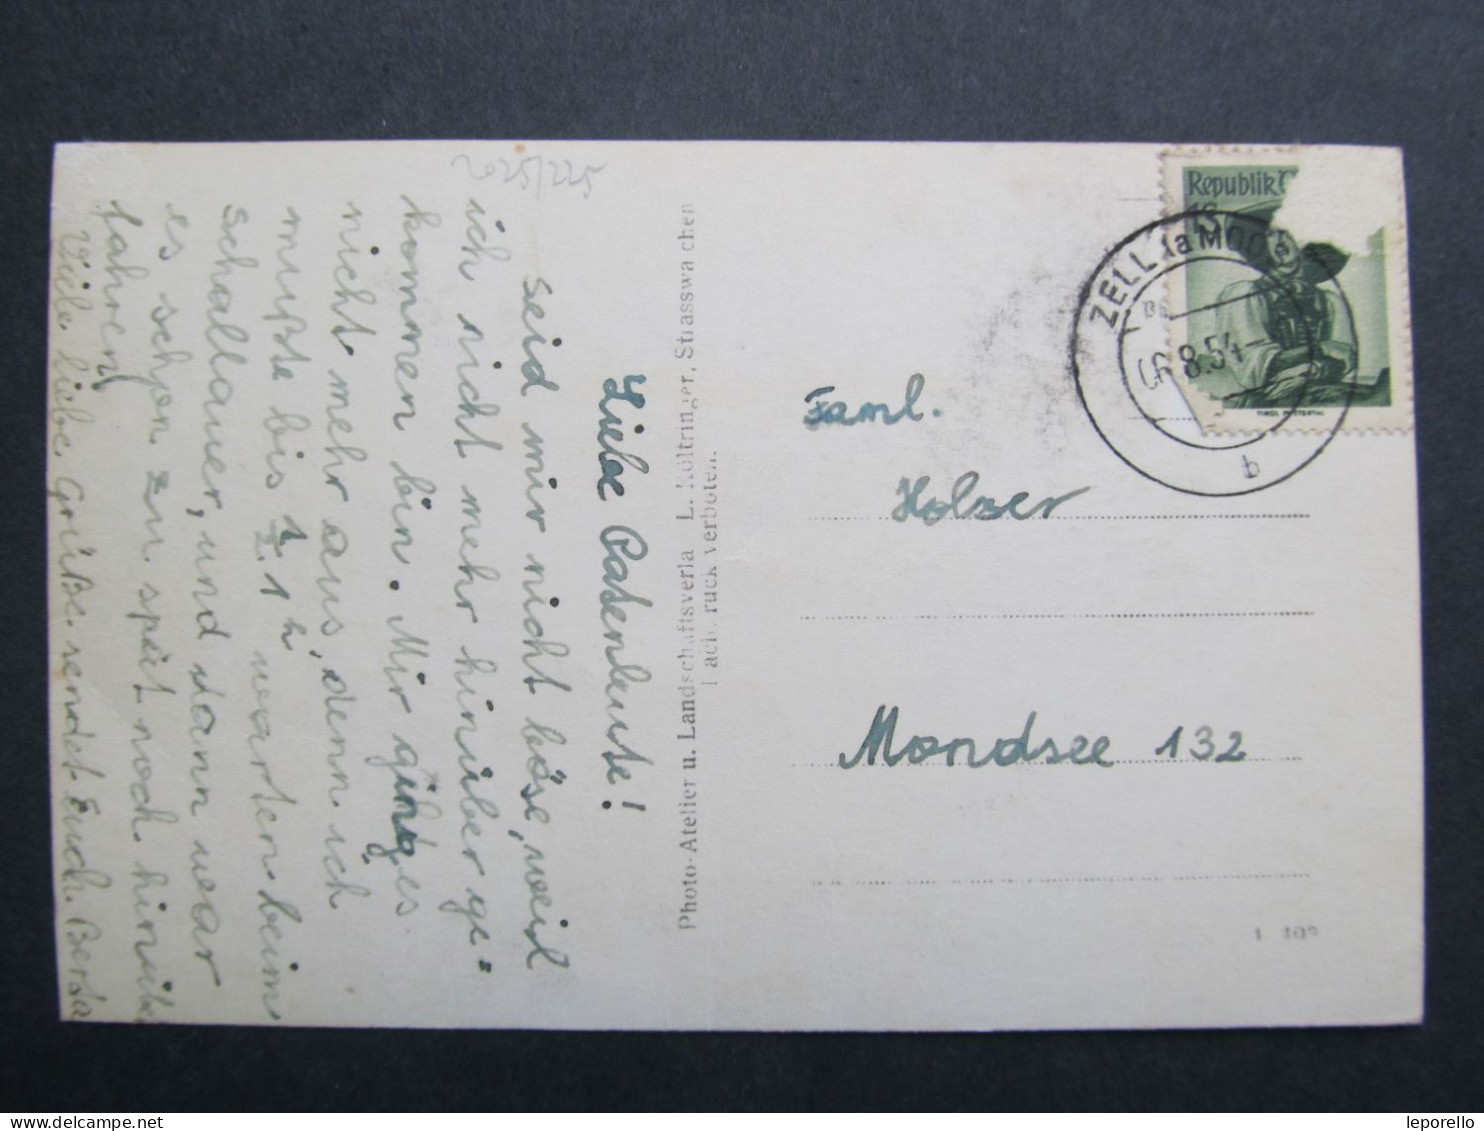 2025/225
Liebe Patenleute!
Seid mir nicht böse, weil
ich nicht mehr hinüber ge=
kommen bin. Mir ging es
nicht mehr aus, denn ich
mußte bis 1/2 1 h warten beim
Schallauer, und dann war
es schon zu spät noch hinüber
fahren
Viele liebe Grüße sendet Euch Berta
Photo-Atelier u. Landschaftsverla L. Költringer, Strasswalchen
verboten.
Republik
ZELL
06.8.54
b
TIROL
Faml.
Holzer
Mondsee 132
leporello
delcampe.net